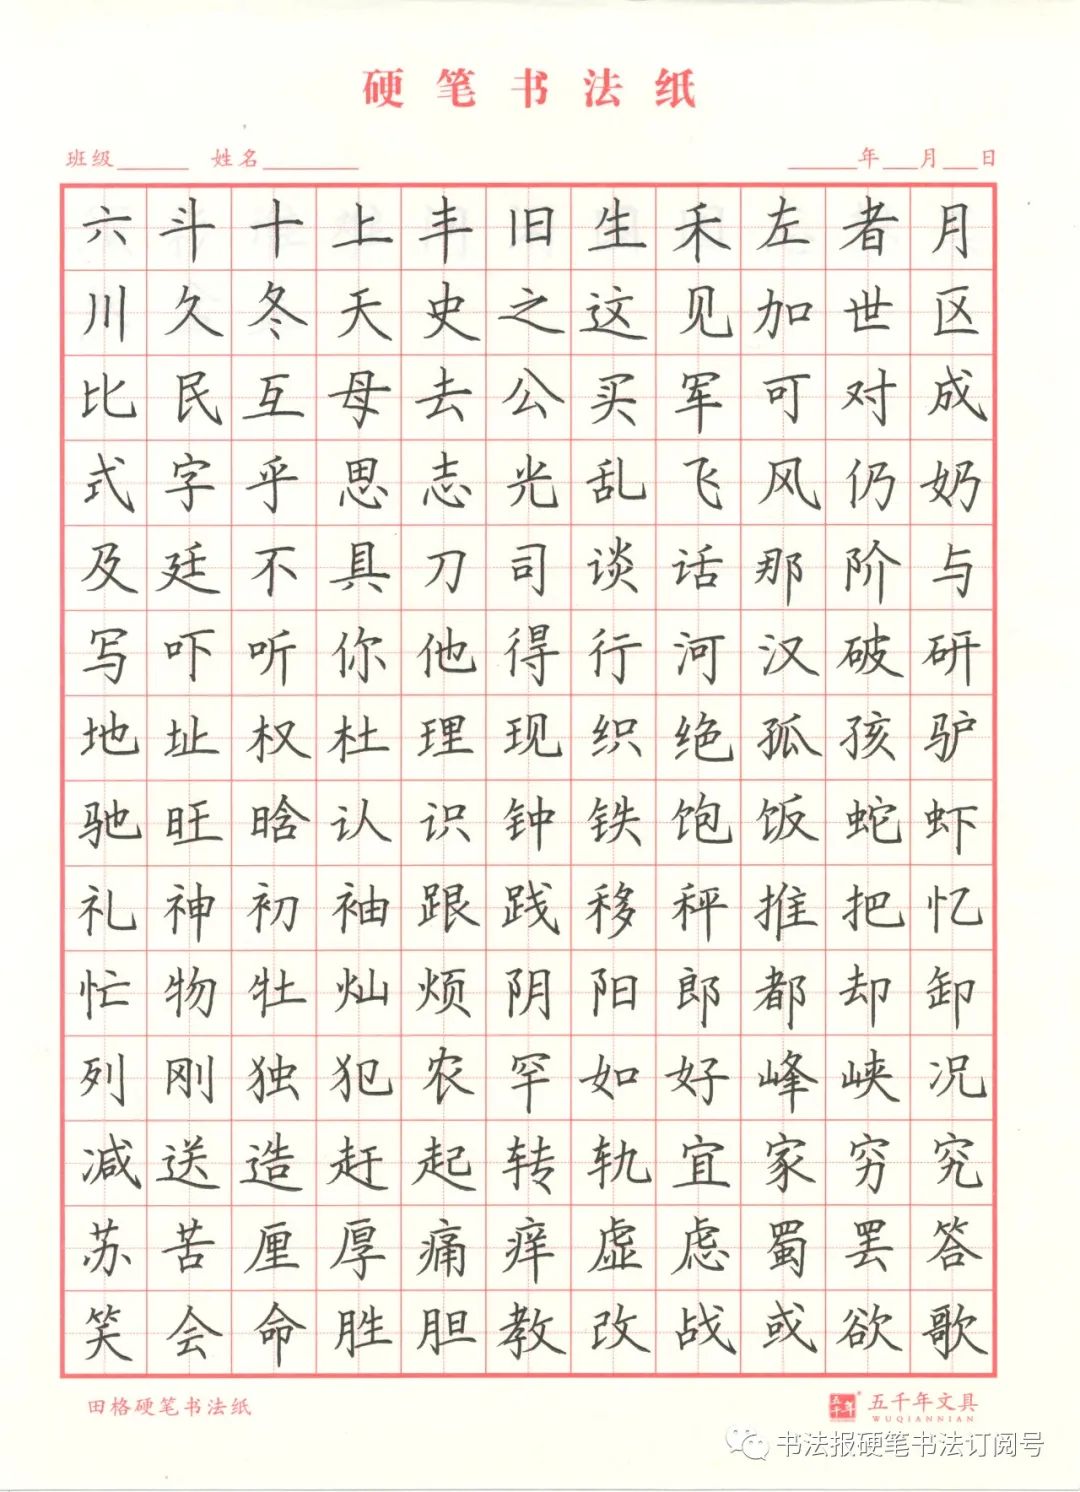 硬笔书法纸
班级______ 姓名________ ______年___月___日
六斗十上丰旧生禾左者月
川久冬天史之这见加世区
比民互母去公买军可对成
式字乎思志光乱飞风仍奶
及廷不具刀司谈话那阶与
写吓听你他得行河汉破研
地址权杜理现织绝孤孩驴
驰旺晗认识钟铁饱饭蛇虾
礼神初袖跟践移秤推把忆
忙物牡灿烦阴阳郎都却卸
列刚独犯农罕如好峰峡况
减送造赶起转轨宜家穷究
苏苦厘厚痛痒虚虑蜀罢答
笑会命胜胆教改战或欲歌
田格硬笔书法纸
五千年 五千年文具
WUQIANNIAN
书法报硬笔书法订阅号